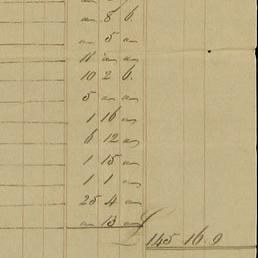 „ 8 6.
„ 5 „
11 „ „
10 2 6.
5 „ „
1 16 „
6 12 „
1 15 „
1 1 „
25 4 „
„ 13 „
£ 145 16 9